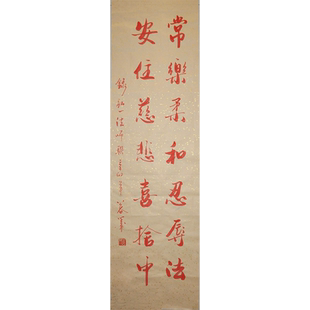 常樂柔和忍辱法
安住慈悲喜捨中